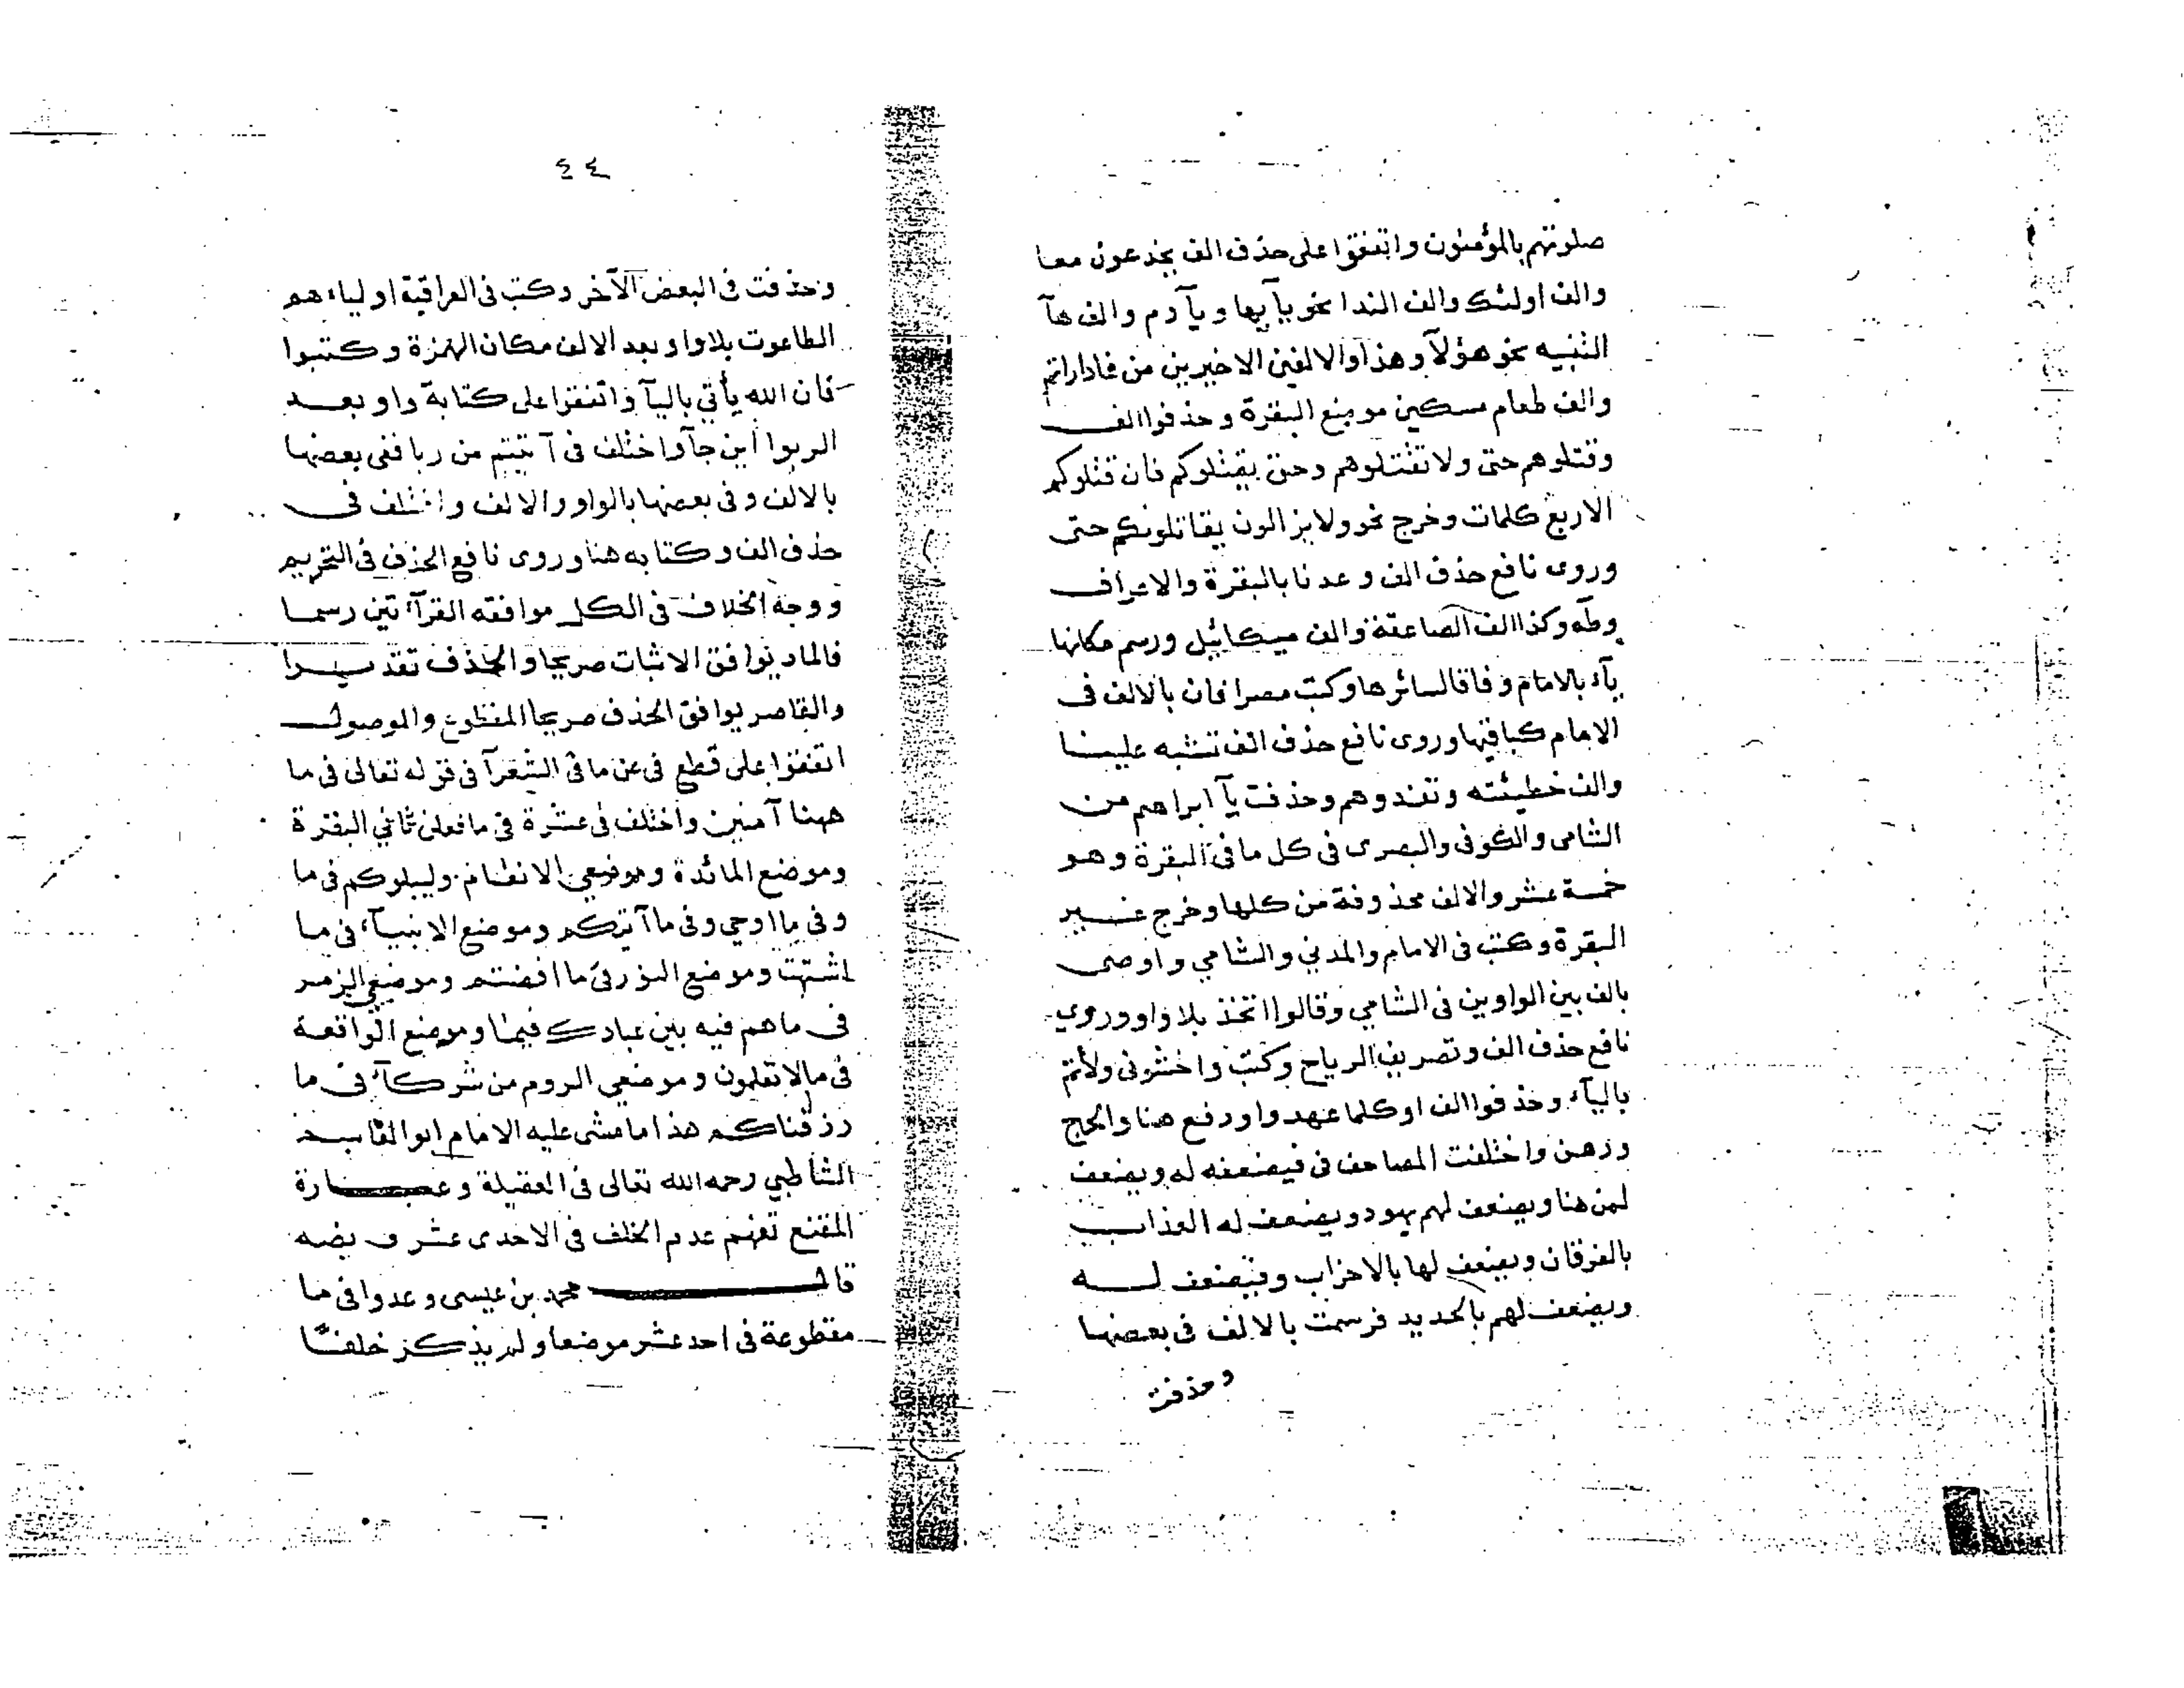 صلوتهم بالمؤمنون واتفقوا على حذف الف يخدعون معا
والف اولئك والف الندا نحو يآيها ويآدم والف هآ
التنبيه نحو هؤلآ وهذا والالفين الاخيرين من فاداراتم
والف طعام مسكين موضع البقرة وحذفوا الف
وقتلوهم حتى ولا تقتلوهم وحتى يقتلوكم فان قتلوكم
الاربع كلمات وخرج نحو ولا يزالون يقاتلونكم حتى
وروى نافع حذف الف وعدنا بالبقرة والاعراف
وطه وكذا الف الصاعقة والف ميكائيل ورسم مكانها
يآء بالامام وفاقا لسائرها وكتب مصرا فان بالالف فى
الامام كباقيها وروى نافع حذف الف تشبه علينا
والف خطيئته وتفدوهم وحذفت يآ ابراهم من
الشامى والكوفى والبصرى فى كل ما فى البقرة وهو
خمسة عشر والالف محذوفة من كلها وخرج غير
البقرة وكتب فى الامام والمدني والشامي واوصى
بالف بين الواوين فى الشامي وقالوا اتخذ بلا واو وروي
نافع حذف الف وتصريف الرياح وكتب واخشونى ولأتم
باليآء وحذفوا الف او كلما عهدوا ودفع هنا والحج
ورهن واختلفت المصاحف فى فيضعفه له ويضعف
لمن هنا ويضعف لهم بهود ويضعف له العذاب
بالفرقان ويضعف لها بالاحزاب وفيضعف له
ويضعف لهم بالحديد فرسمت بالالف فى بعضها
وحذفت
٤٤
وحذفت فى البعض الآخر وكتب فى العراقية اولياءهم
الطاغوت بلا واو بعد الالف مكان الهمزة وكتبوا
فان الله يأتي باليآ واتفقوا على كتابة واو بعد
الربوا اين جآ واختلف فى آتيتم من ربا ففى بعضها
بالالف وفى بعضها بالواو والالف واختلف فى
حذف الف وكتابه هنا وروى نافع الحذف فى التحريم
ووجه الخلاف فى الكل موافقه القرآءتين رسما
فالماد يوافق الاثبات صريحا والحذف تقديرا
والقاصر يوافق الحذف صريحا المقطوع والموصول
اتفقوا على قطع فى عن ما فى الشعرآ فى قوله تعالى فى ما
ههنا آمنين واختلف فى عشرة فى ما فعلن ثاني البقرة
وموضع المائدة وموضعي الانعام وليبلوكم فى ما
وفى ما اوحي وفى ما آتيكم وموضع الانبيآء فى ما
اشتهت وموضع النور فى ما افضتم وموضعي الزمر
فى ما هم فيه بين عبادك فيما وموضع الواقعة
فى مالا تعلمون وموضعي الروم من شركآء فى ما
رزقناكم هذا ما مشى عليه الامام ابو القاسم
الشاطبي رحمه الله تعالى فى العقيلة وعبارة
المقنع تفهم عدم الخلف فى الاحدى عشر ونصه
قال محمد بن عيسى وعدوا فى ما
مقطوعة فى احد عشر موضعا ولم يذكر خلفا